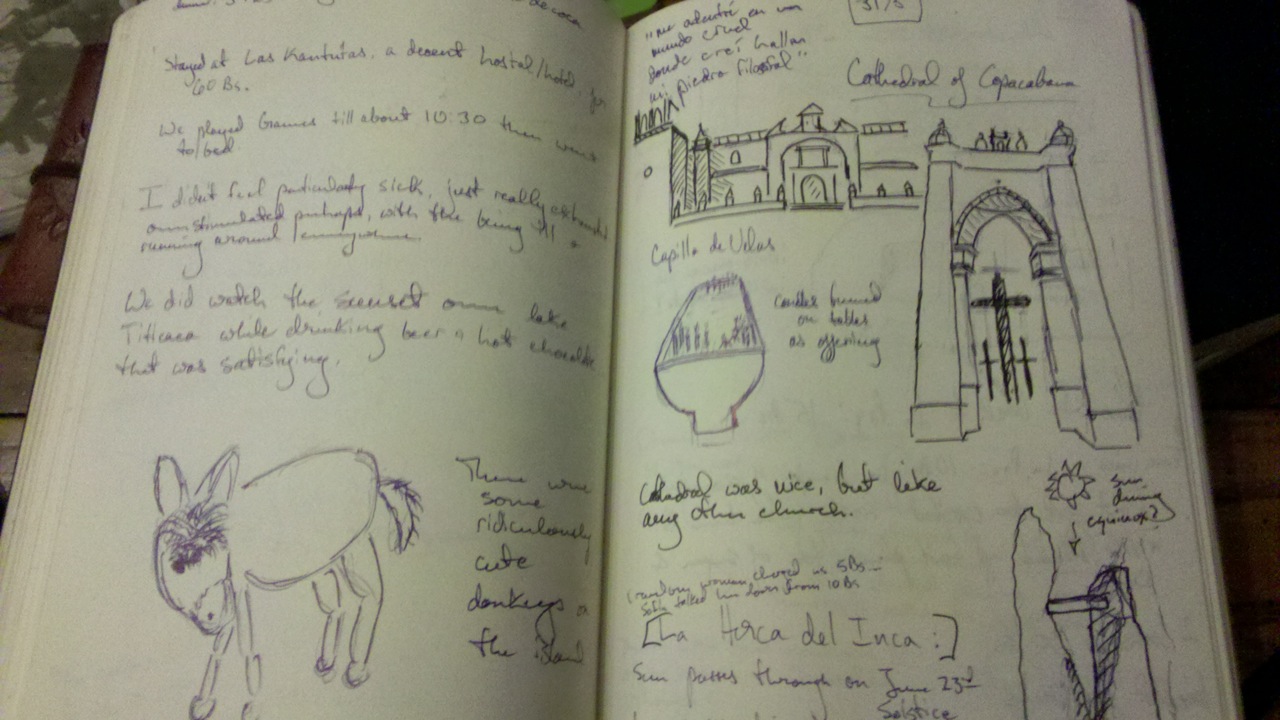 de coca
Stayed at Las Kantutas, a decent hostal/hotel, for
60 Bs.
We played Games till about 10:30 then went
to bed
I didn't feel particularly sick, just really exhausted
overstimulated perhaps, with the being ill &
running around
We did watch the sunset over lake
Titicaca while drinking beer & hot chocolate
that was satisfying.
There were
some
ridiculously
cute
donkeys on
the island
"me adentré en un
mundo cruel
donde creí hallar
mi piedra filosofal"
31/5
Cathedral of Copacabana
Capilla de Velas
candles burned
on tables
as offering
Cathedral was nice, but like
any other church.
sun
during
equinox?
(random woman charged us 5Bs
talked him down from 10 Bs
[La Horca del Inca:]
Sun passes through on June 23rd
Solstice